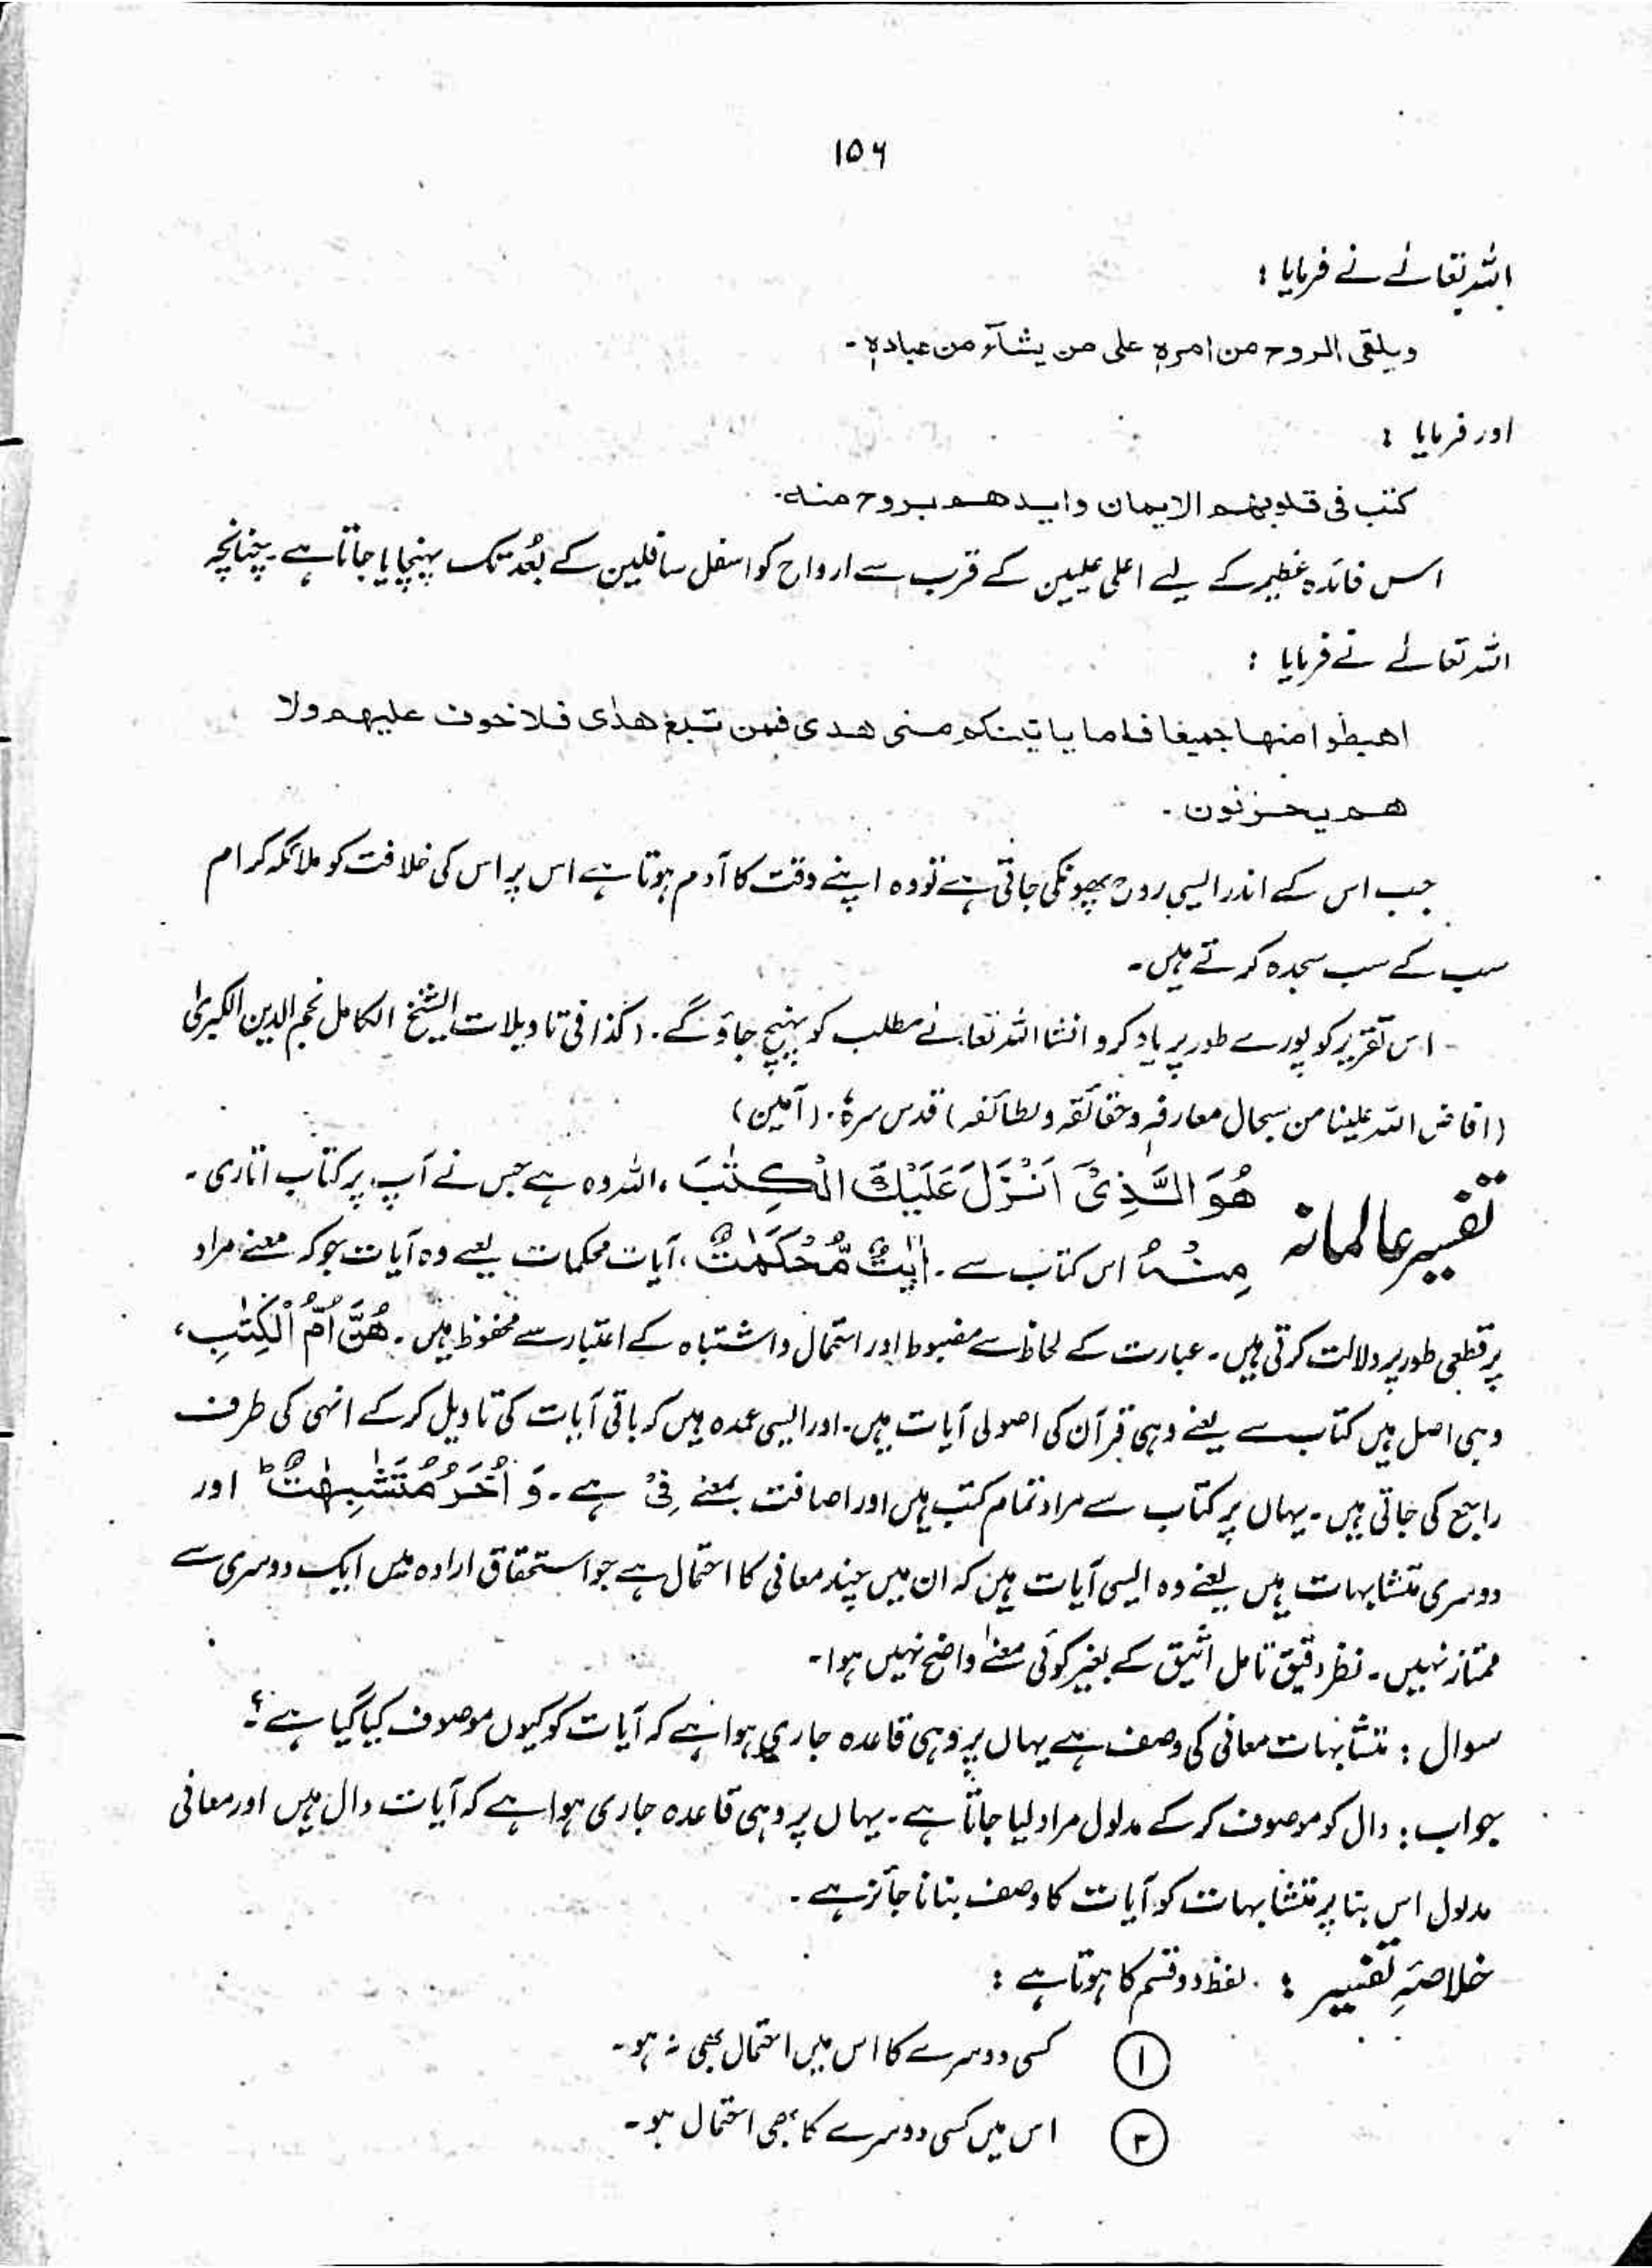 ۱۵۶
اللہ تعالےٰ نے فرمایا :
ویلقی الروح من امرہٖ علی من یشآء من عبادہٖ ۔
اور فرمایا :
کتب فی قلوبھم الایمان وایدھم بروح منہ۔
اس فائدہ عظیم کے لیے اعلیٰ علیین کے قرب سے ارواح کو اسفل سافلین کے بُعد تک پہنچایا جاتا ہے ۔ چنانچہ
اللہ تعالےٰ نے فرمایا :
اھبطوا منھا جمیعا فاما یاتینکم منی ھدی فمن تبع ھدای فلا خوف علیھم ولا
ھم یحزنون ۔
جب اس کے اندر ایسی روح پھونکی جاتی ہے تو وہ اپنے وقت کا آدم ہوتا ہے اس پر اس کی خلافت کو ملائکہ کرام
سب کے سب سجدہ کرتے ہیں ۔
اس تقریر کو پورے طور پر یاد کرو انشا اللہ تعالےٰ مطلب کو پہنچ جاؤ گے ۔ (کذا فی تاویلات الشیخ الکامل نجم الدین الکبریٰ
(افاض اللہ علینا من سجال معارفہٖ وحقائقہ ولطائفہ) قدس سرہٗ ۔ (آمین)
تفسیر عالمانہ ھُوَ الَّذِیْٓ اَنْزَلَ عَلَیْکَ الْکِتٰبَ ، اللہ وہ ہے جس نے آپ پر کتاب اتاری ۔
مِنْہُ اس کتاب سے ۔ اٰیٰتٌ مُّحْکَمٰتٌ ، آیات محکمات یعنے وہ آیات جو کہ معنے مراد
پر قطعی طور پر دلالت کرتی ہیں ۔ عبارت کے لحاظ سے مضبوط اور احتمال و اشتباہ کے اعتبار سے محفوظ ہیں ۔ ھُنَّ اُمُّ الْکِتٰبِ ،
وہی اصل ہیں کتاب سے یعنے وہی قرآن کی اصولی آیات ہیں ۔ اور ایسی عمدہ ہیں کہ باقی آیات کی تاویل کرکے انہی کی طرف
راجع کی جاتی ہیں ۔ یہاں پر کتاب سے مراد تمام کتب ہیں اور اضافت بمعنے فِیْ ہے ۔ وَ اُخَرُ مُتَشٰبِھٰتٌ ؕ اور
دوسری متشابہات ہیں یعنے وہ ایسی آیات ہیں کہ ان میں چند معانی کا احتمال ہے جو استحقاق ارادہ میں ایک دوسری سے
ممتاز نہیں ۔ نظر دقیق تامل انیق کے بغیر کوئی معنےٰ واضح نہیں ہوا ۔
سوال : متشابہات معانی کی وصف ہے یہاں پر وہی قاعدہ جاری ہوا ہے کہ آیات کو کیوں موصوف کیا گیا ہے ؟
جواب : دال کو موصوف کرکے مدلول مراد لیا جاتا ہے ۔ یہاں پر وہی قاعدہ جاری ہوا ہے کہ آیات دال ہیں اور معانی
مدلول اس بنا پر متشابہات کو آیات کا وصف بنانا جائز ہے ۔
خلاصۂ تفسیر : لفظ دو قسم کا ہوتا ہے :
۱ کسی دوسرے کا اس میں احتمال بھی نہ ہو ۔
۲ اس میں کسی دوسرے کا بھی احتمال ہو ۔